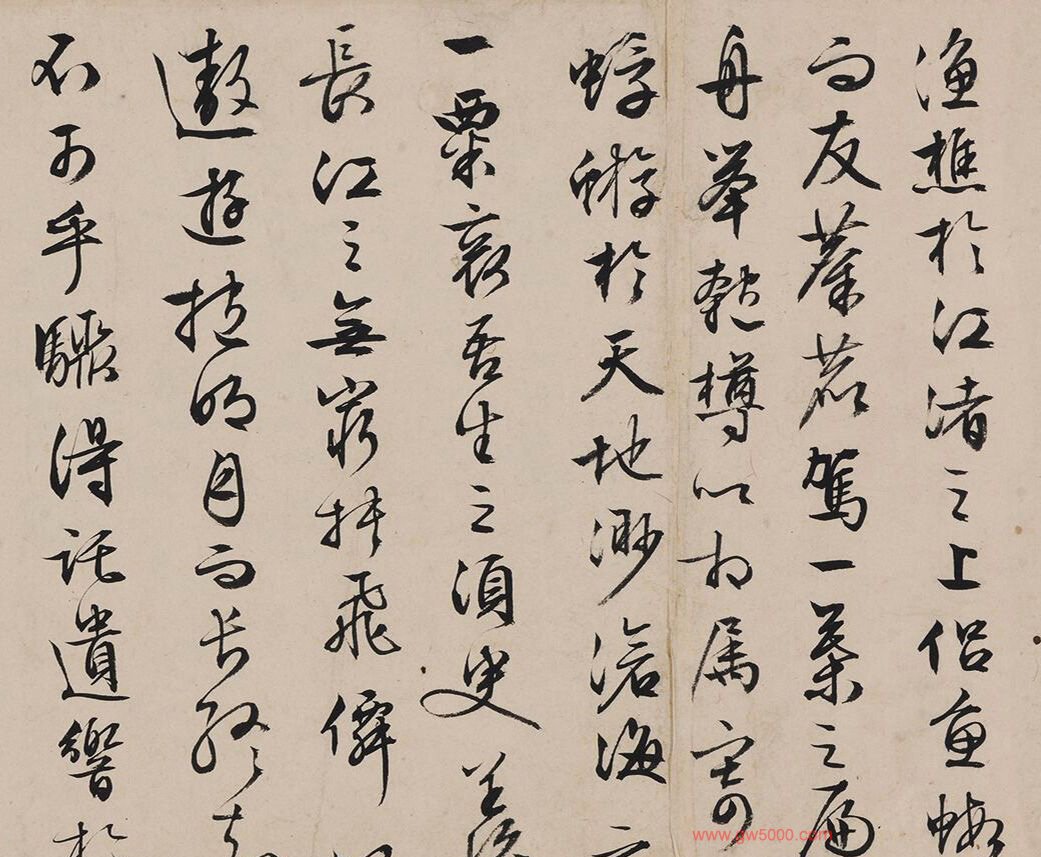 漁樵於江渚之上侶魚蝦
而友麋鹿駕一葉之扁
舟舉匏樽以相屬寄
蜉蝣於天地渺滄海之
一粟哀吾生之須臾羨
長江之無窮挾飛僊
遨遊抱明月而長終知
不可乎驟得託遺響於
www.gw5000.com